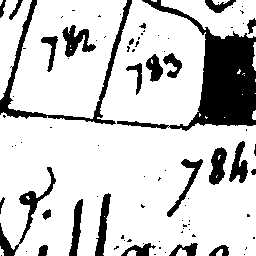 782 783
784
Village